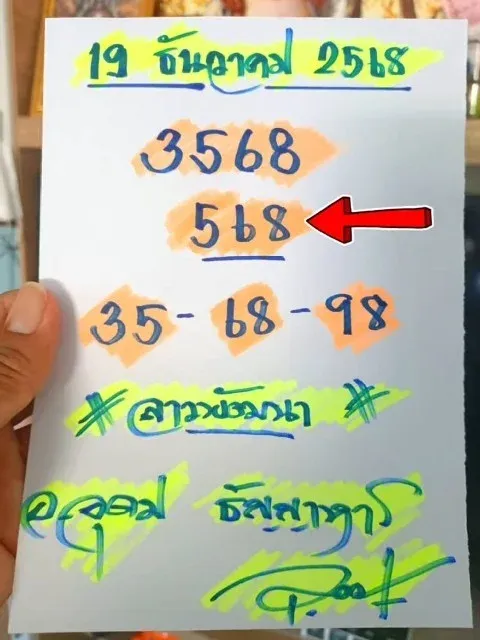 19 ธันวาคม 2568
3568
568
35 - 68 - 98
# ลาวพัฒนา #
อ.อุดม ธัญญาหาร